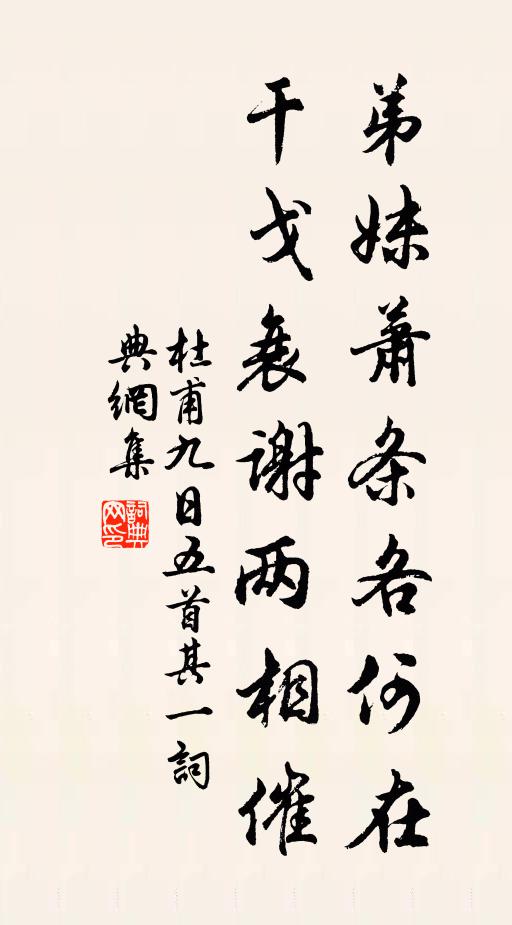 弟妹萧条各何在
干戈衰谢两相催
杜甫九日五首其一詞
典網集
詞典网印